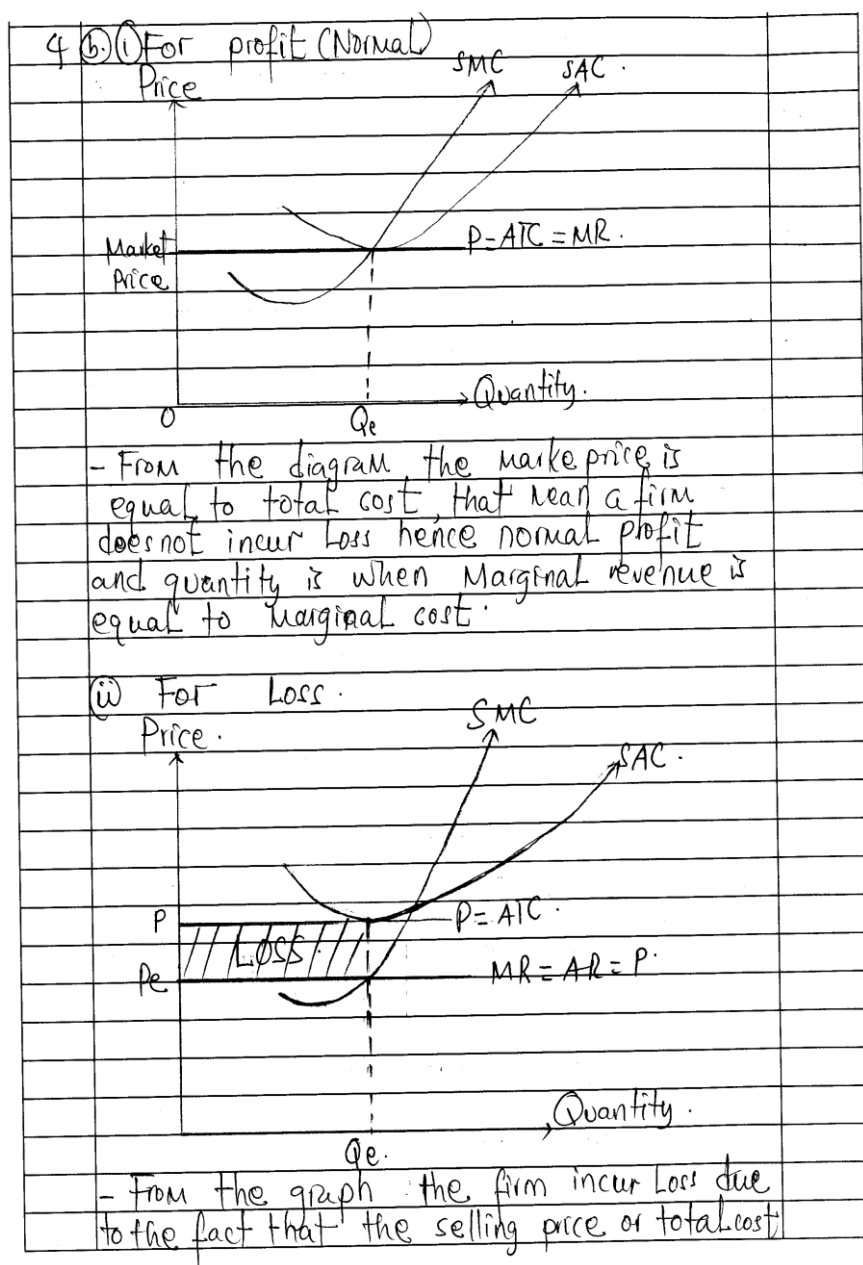 4 (b.) (i) For profit (Normal)
Price
SMC SAC.
Market P=ATC=MR.
Price
Quantity.
O Qe
- From the diagram the marke price is
equal to total cost, that mean a firm
does not incur Loss hence normal profit
and quantity is when Marginal revenue is
equal to Marginal cost.
(ii) For Loss.
Price. SMC
SAC.
P P=ATC.
LOSS
Pe MR=AR=P.
Quantity.
Qe.
- From the graph the firm incur Loss due
to the fact that the selling price or total cost